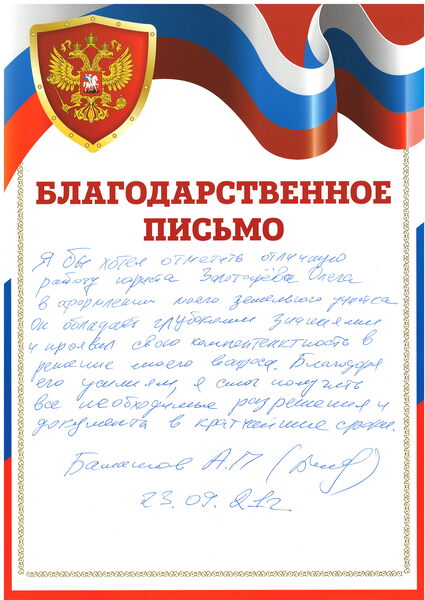 БЛАГОДАРСТВЕННОЕ
ПИСЬМО
Я бы хотел отметить отличную
работу юриста Золотарёва Олега
в оформлении моего земельного участка
Он обладает глубокими знаниями
и проявил свою компетентность в
решение моего вопроса. Благодаря
его усилиям, я смог получить
все необходимые разрешения и
документа в кратчайшие сроки.
А.П
23.09.21г.